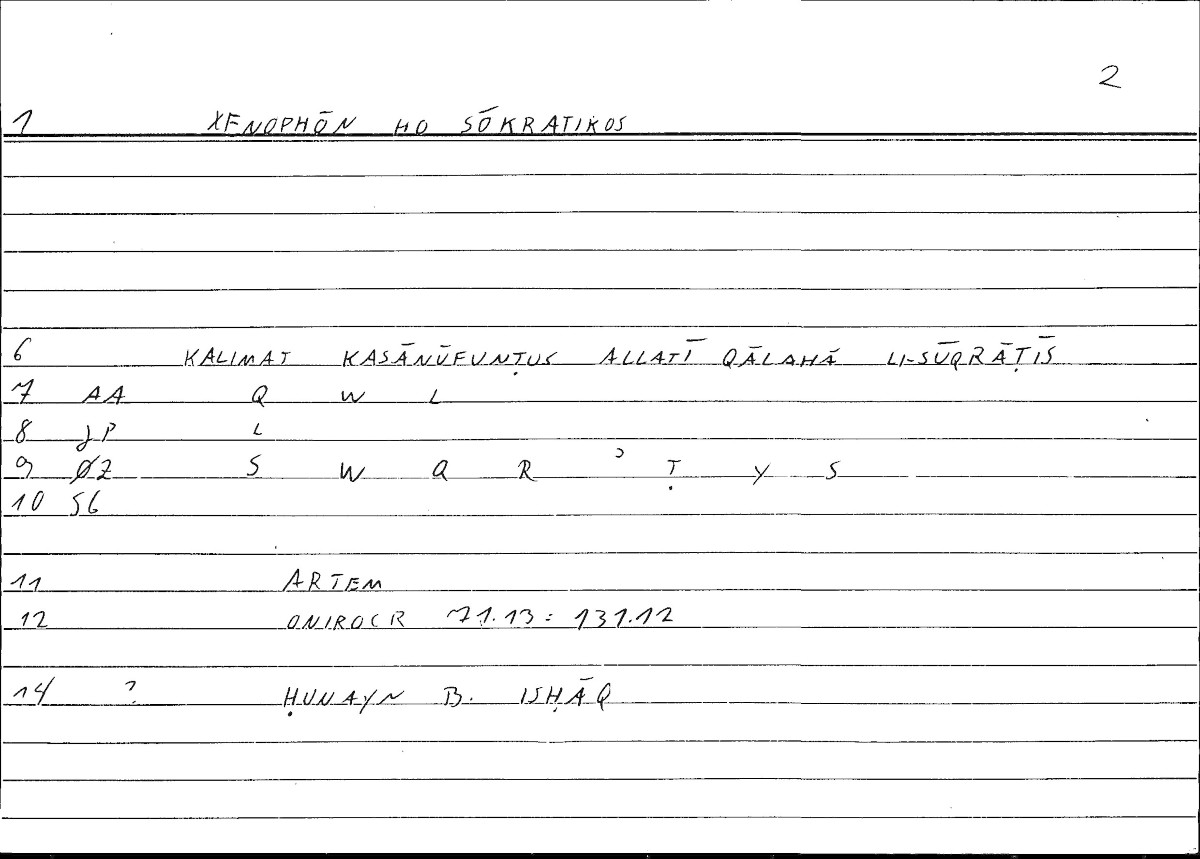 2
1 XENOPHŌN HO SŌKRATIKOS
6 KALIMAT KASĀNŪFUNṬUS ALLATĪ QĀLAHĀ LI-SŪQRĀṬĪS
7 AA Q W L
8 JP L
9 ØZ S W Q R ʾ Ṭ Y S
10 SG
11 ARTEM
12 ONIROCR 71.13 = 131.12
14 ? ḤUNAYN B. ISḤĀQ